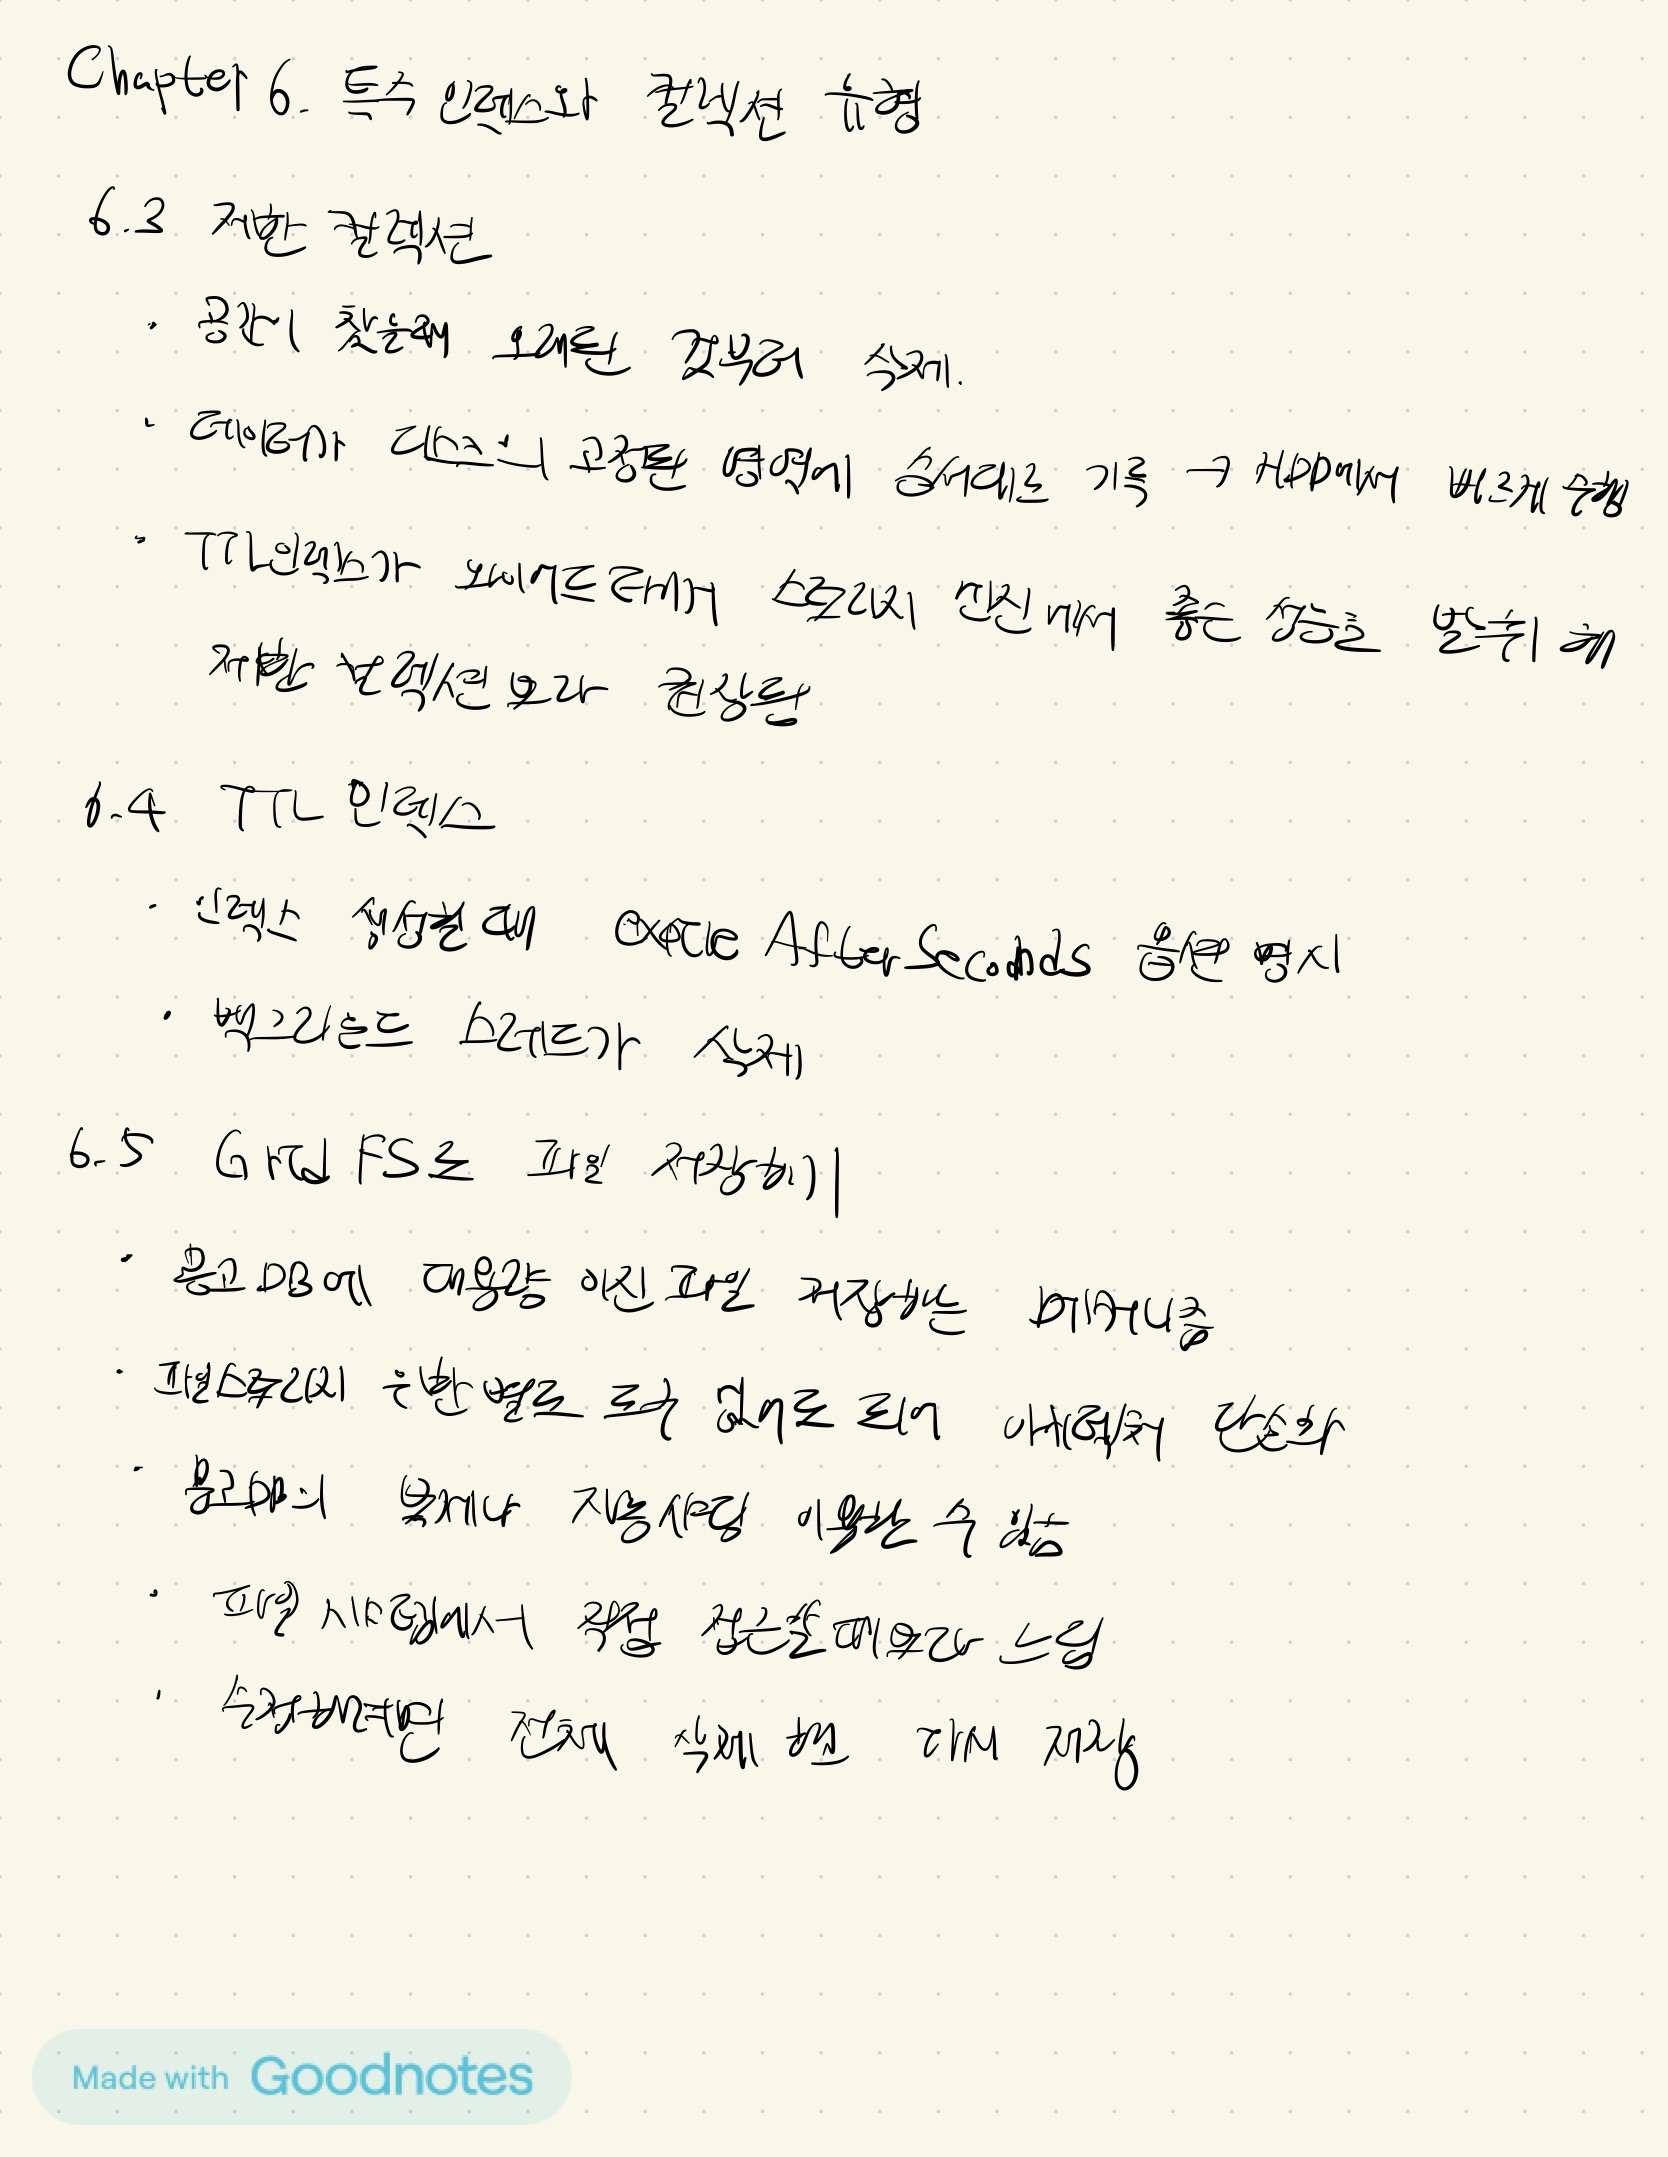 Chapter 6. 특수 인덱스와 컬렉션 유형
6.3 제한 컬렉션
· 공간이 찼을때 오래된 것부터 삭제.
· 데이터가 디스크의 고정된 영역에 순서대로 기록 → HDD에서 빠르게 수행
· TTL인덱스가 와이어드타이거 스토리지 엔진에서 좋은 성능을 발휘해
제한 컬렉션보다 권장됨
6.4 TTL 인덱스
· 인덱스 생성할 때 expireAfterSeconds 옵션 명시
· 백그라운드 스레드가 삭제
6.5 GridFS로 파일 저장하기
· 몽고DB에 대용량 이진 파일 저장하는 메커니즘
· 파일스토리지 위한 별도 도구 없어도 되어 아키텍처 단순화
· 몽고DB의 복제나 자동샤딩 이용할 수 있음
· 파일 시스템에서 직접 접근할때보다 느림
· 수정하려면 전체 삭제 후 다시 저장
Made with Goodnotes